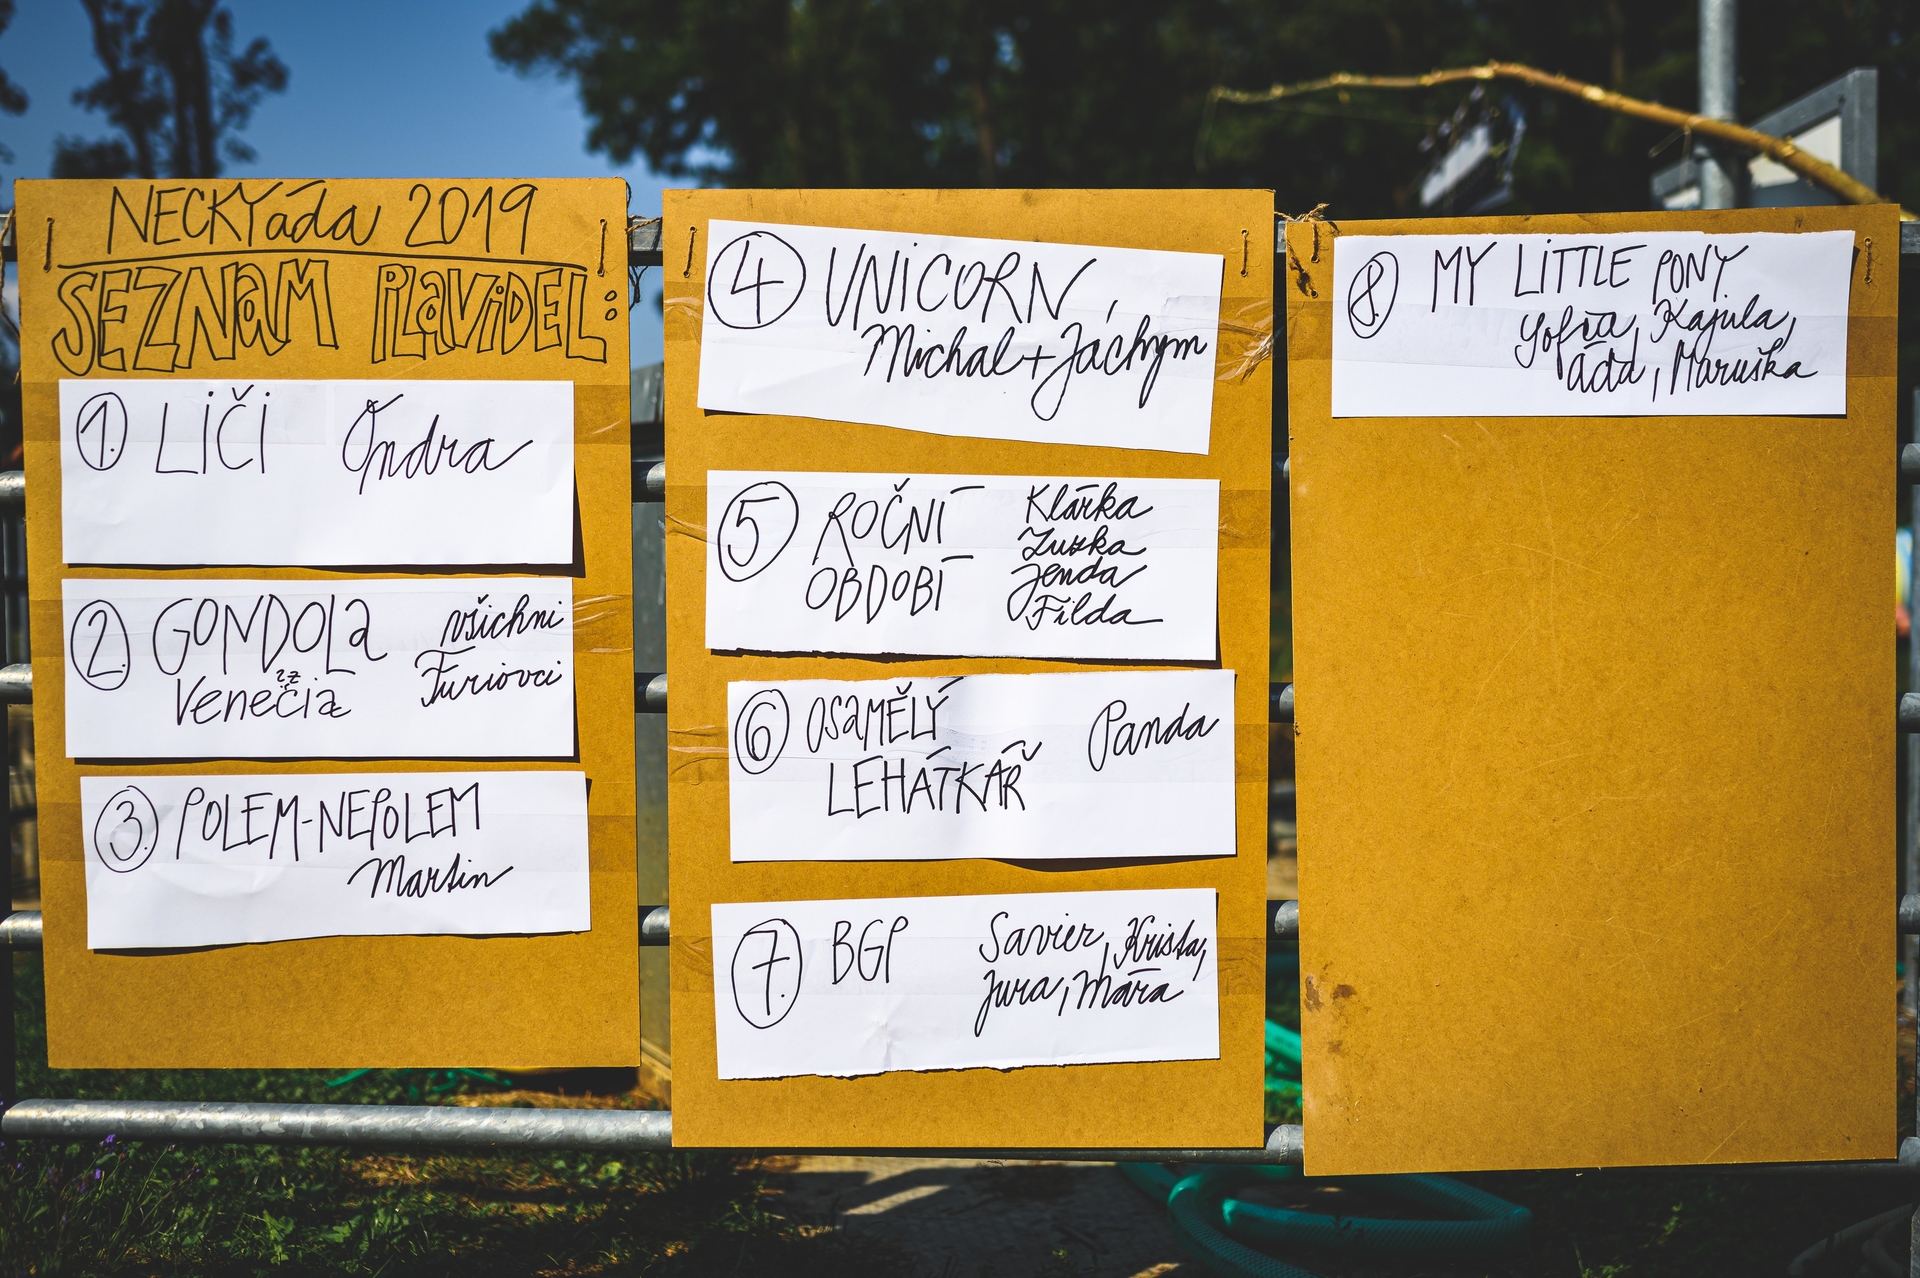 NECKYáda 2019
SEZNaM PLaViDEL:
1. LiČi Ondra
2. GONDOLa všichni
Venečia Furiovci
3. POLEM-NEPOLEM
Martin
4 UNiCORN,
Michal + Jáchym
5 ROČNÍ Klárka
Zuzka
OBDOBÍ Jenda
Filda
6 OSaMĚLÝ Panda
LEHÁTKÁŘ
7. BGP Savier, Krista,
Jura, Mára
8. MY LiTTLE PONY
Yofča, Kajula,
Áďa, Maruška